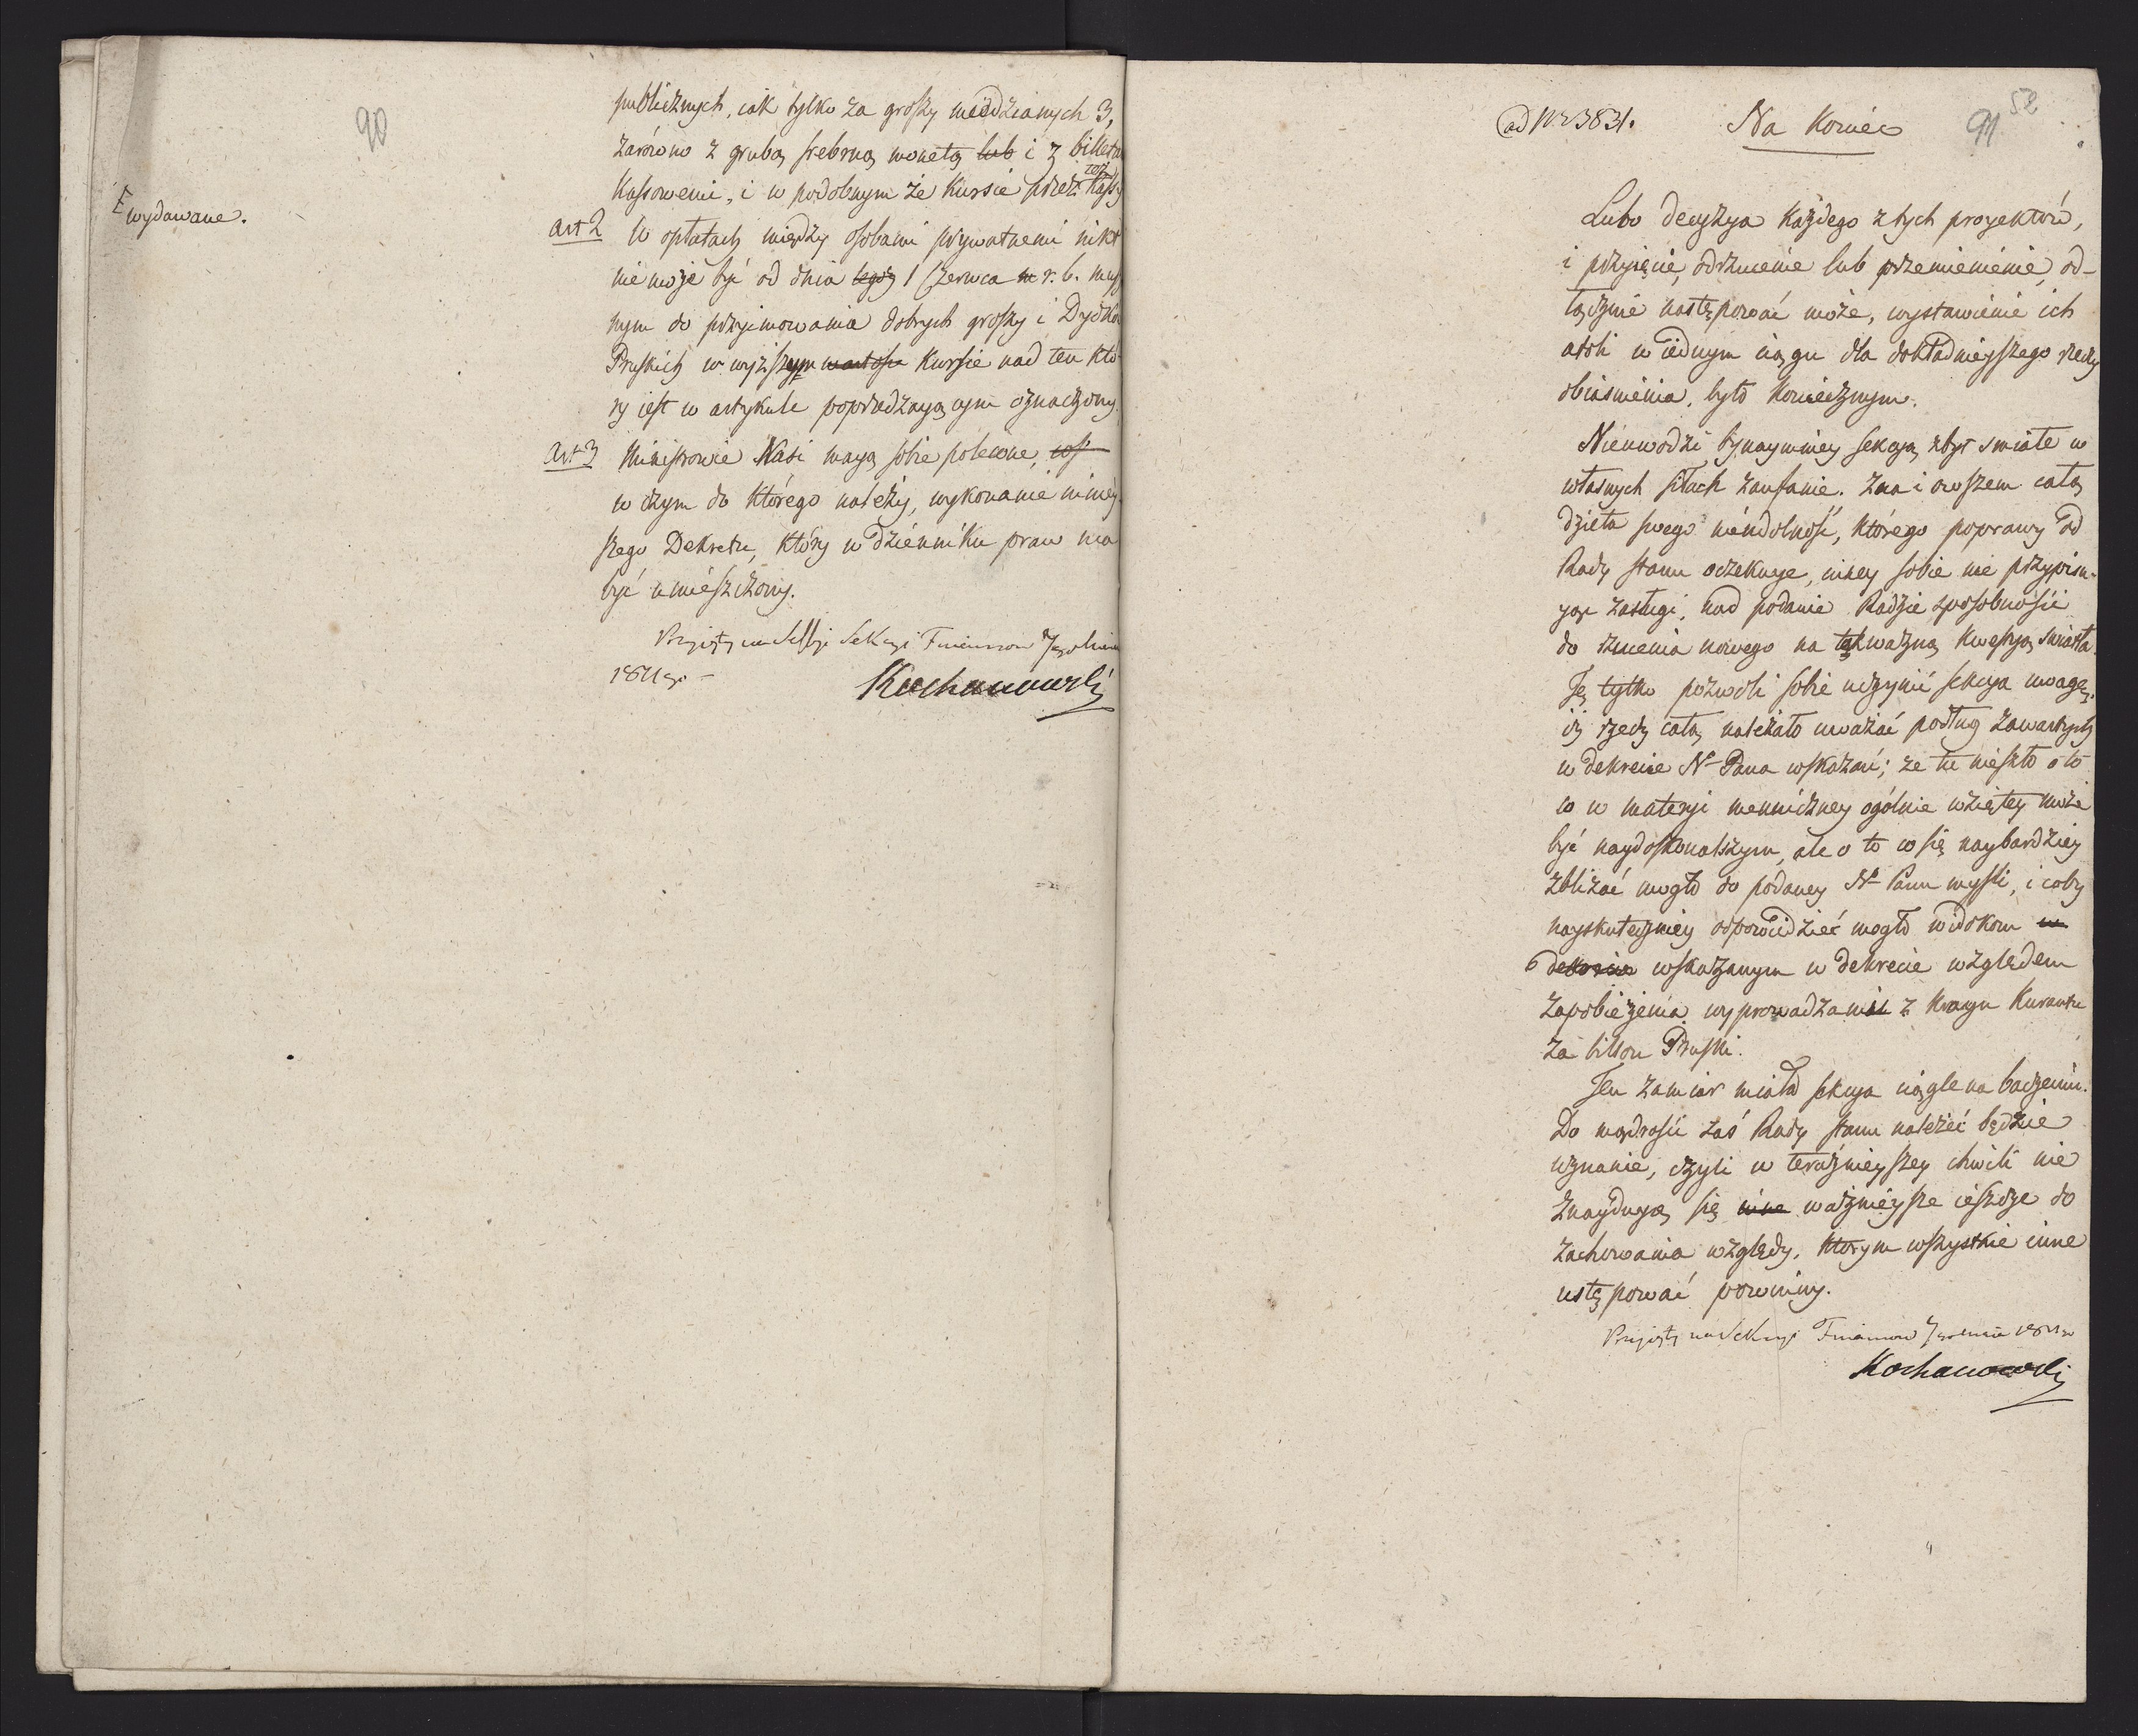 90
publicznych, iak tylko za groszy miedzianych 3,
zarówno z grubą srebrną monetą lub i z billeta
Kassowemi, i w podobnym że Kursie przez też Kassy
[ wydawane.
art 2 W opłatach między osobami prywatnemi nikt
nie może być od dnia 1 Czerwca r. b. 
nym do przyimowania dobrych groszy i Dydko
Pruskich w wyższym wartości Kursie nad ten któ-
ry iest w artykule poprzedzaiącym oznaczony.
Art 3 Ministrowie Nasi maią sobie polecone,
w czym do którego należy, wykonanie niniey
szego Dekretu, który w dzienniku praw ma
być umieszczony.
Przyięty na Sessyi Sekcyi Finansow
1811 go
Kochanowski
ad Nr 3831. Na Koniec 91 52
Lubo decyzya każdego z tych proiektów,
i przyięcie, odrzucenie lub przemienienie, od-
łącznie następować może, wystawienie ich
atoli w iednym ciągu dla dokładnieyszego rzeczy
obiasnienia, było koniecznym.
Nieuwodzi bynaymniey sekcyą zbyt smiałe w
własnych siłach zaufanie. Zna i owszem całą
dzieła swego nieudolność, którego poprawy od
Rady stanu oczekuye, inney sobie nie przypisu-
yąc zasługi, nad podanie Radzie sposobności
do rzucenia nowego na tak ważną kwestyą światła.
Tę tylko pozwoli sobie uczynić sekcya uwagę,
iż rzecz całą należało uważać podług zawartych
w dekrecie Nº Pana wskazań; że tu nieszło o to
co w materyi menniczney ogólnie wziętey może
być naydoskonalszym, ale o to co się naybardziey
zbliżać mogło do podaney Nº Panu mysli, i coby
nayskuteczniey odpowiedzieć mogło widokom w
dekrecie wskazanym w dekrecie względem
zapobieżenia wyprowadzaniu z krayu Kurantu
za billon Pruski.
Ten zamiar miała sekcya ciągle na baczeniu.
Do mądrości zaś Rady stanu należeć będzie
uznanie, czyli w teraznieyszey chwili nie
znayduyą się inne ważnieysze ieszcze do
zachowania względy, którym wszystkie inne
ustępować powinny.
Przyięty na Sekcyi Finansow 1811 go
Kochanowski